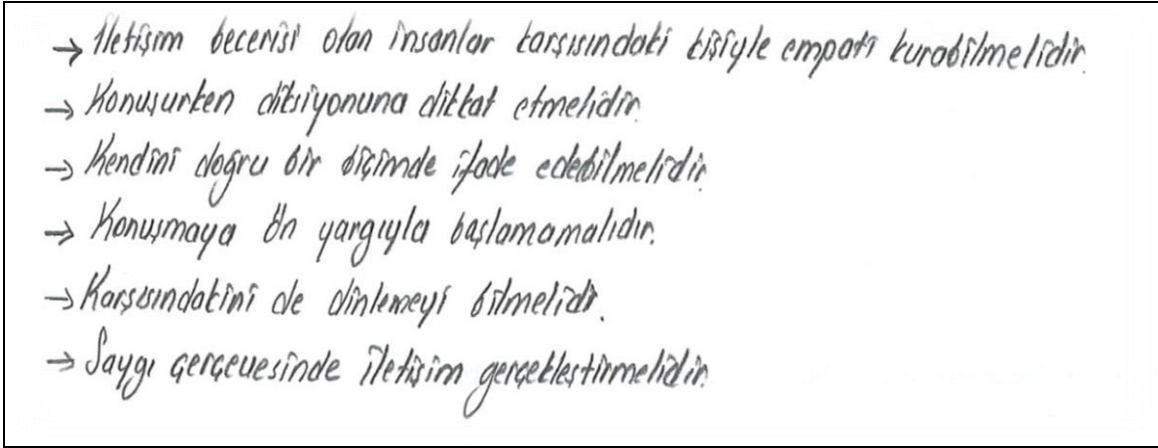 → İletişim becerisi olan insanlar karşısındaki kişiyle empati kurabilmelidir.
→ Konuşurken diksiyonuna dikkat etmelidir.
→ Kendini doğru bir biçimde ifade edebilmelidir.
→ Konuşmaya ön yargıyla başlamamalıdır.
→ Karşısındakini de dinlemeyi bilmelidir.
→ Saygı çerçevesinde iletişim gerçekleştirmelidir.